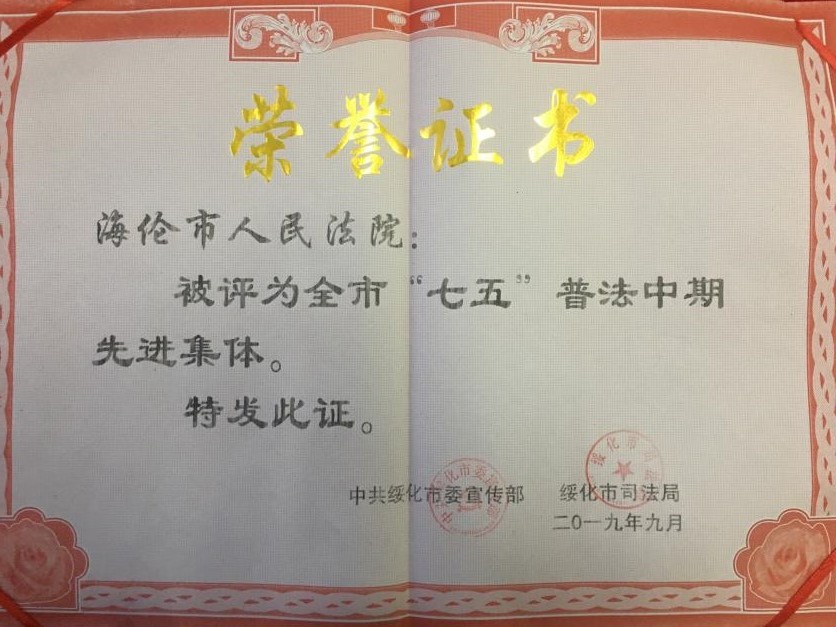 荣誉证书
海伦市人民法院：
被评为全市“七五”普法中期
先进集体。
特发此证。
中共绥化市委宣传部 绥化市司法局
二〇一九年九月